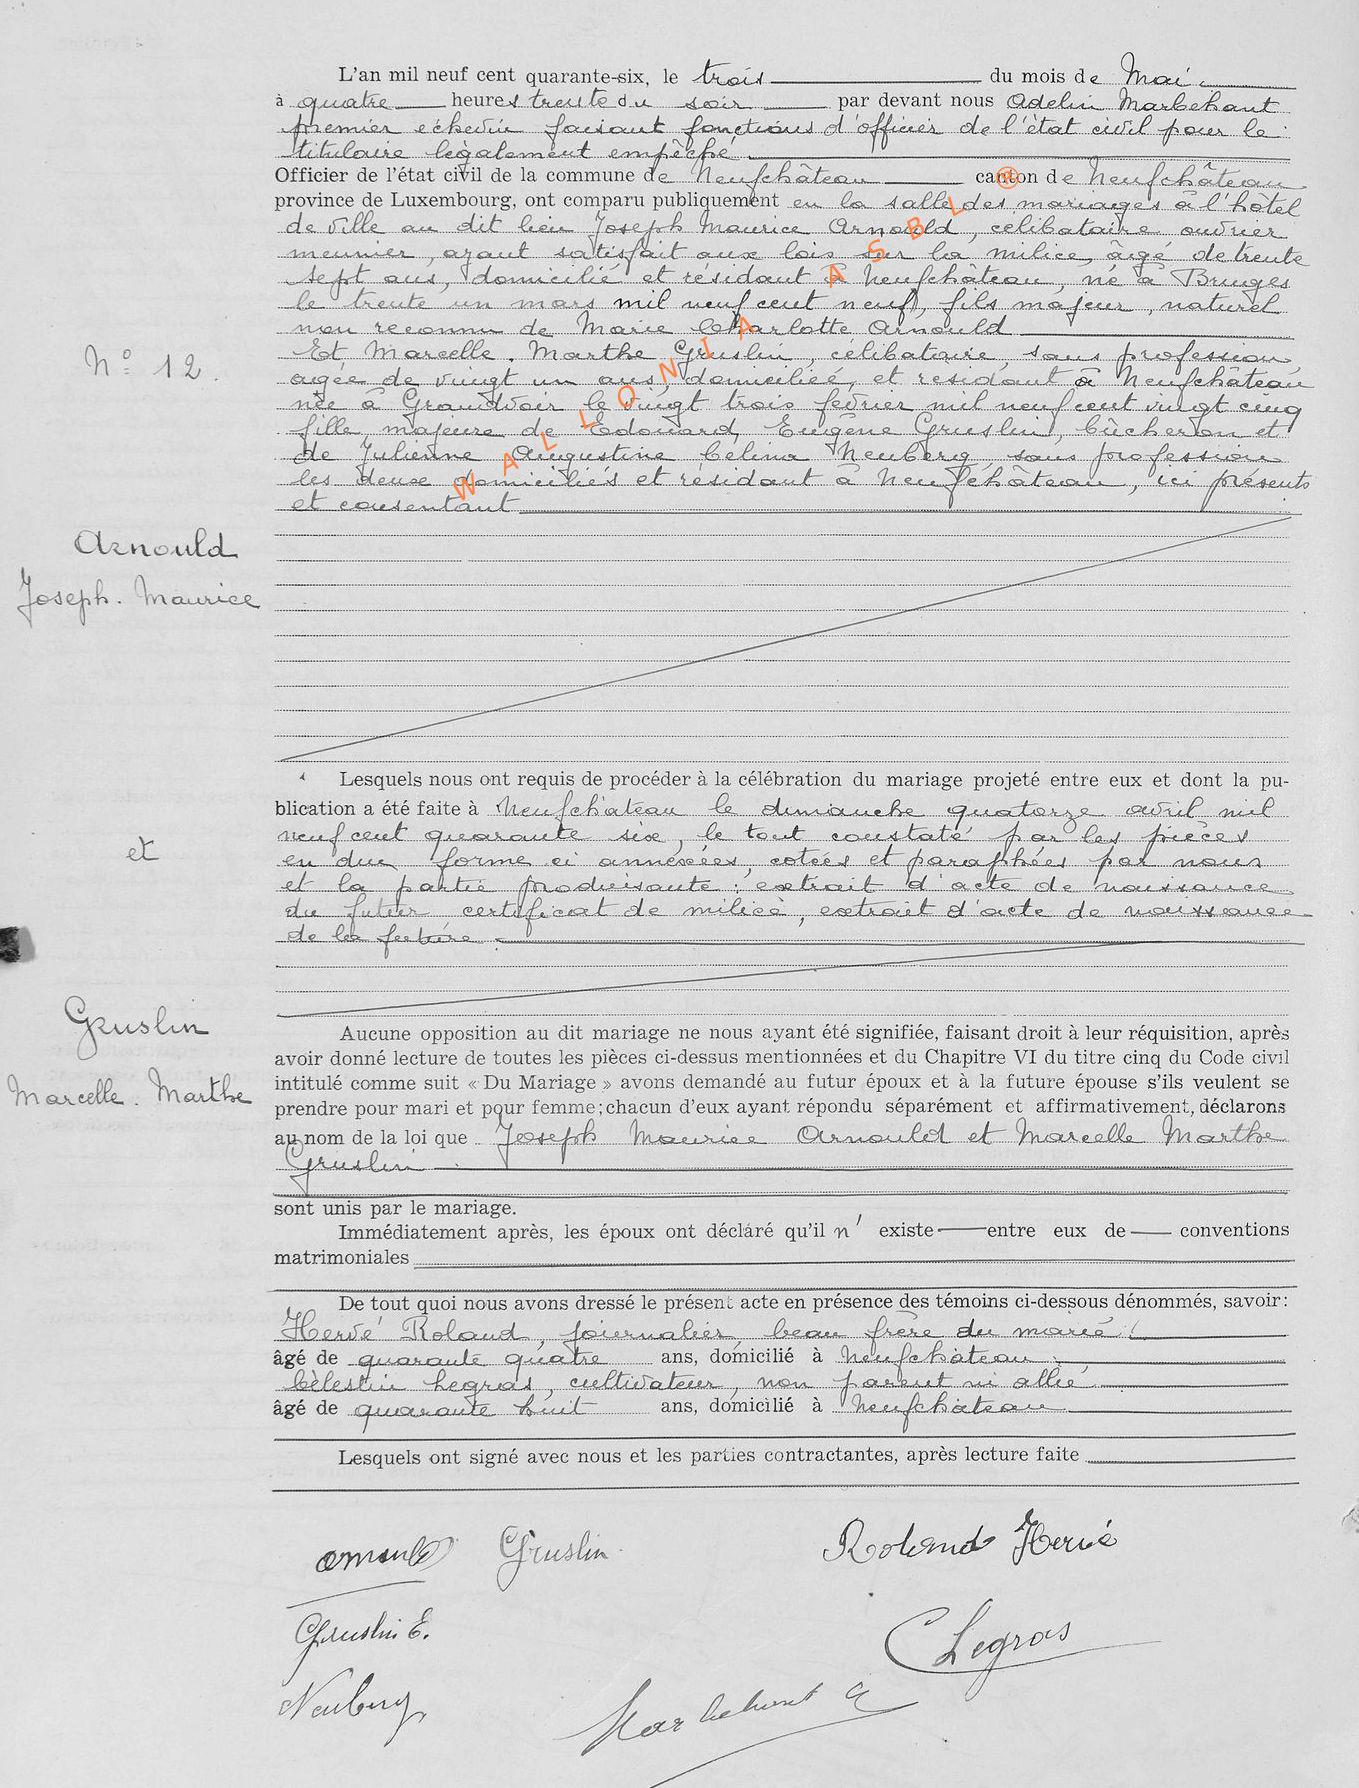 L'an mil neuf cent quarante-six, le trois du mois de Mai
à quatre heures trente du soir par devant nous Adelin Marbehant
premier échevin faisant fonctions d'officier de l'état civil pour le
titulaire légalement empêché
Officier de l'état civil de la commune de Neufchâteau canton de Neufchâteau
province de Luxembourg, ont comparu publiquement en la salle des mariages à l'hôtel
de ville au dit lieu Joseph Maurice Arnould, célibataire ouvrier
meunier, ayant satisfait aux lois sur la milice, âgé de trente
sept ans, domicilié et résidant à Neufchâteau, né à Bruges
le trente un mars mil neuf cent neuf, fils majeur, naturel
non reconnu de Marie Charlotte Arnould
N° 12.
Et Marcelle. Marthe Gruslin, célibataire, sans profession
agée de vingt un ans, domiciliée, et residant à Neufchâteau
née à Grandvoir le vingt trois fevrier mil neuf cent vingt cinq
fille majeure de Edouard, Eugène Gruslin, bûcheron et
de Julienne Augustine Celina Neuberg, sans profession
les deux domiciliés et résidant à Neufchâteau, ici présents
et consentant
WALLONIA ASBL @
Arnould
Joseph. Maurice
Lesquels nous ont requis de procéder à la célébration du mariage projeté entre eux et dont la pu-
blication a été faite à Neufchâteau le dimanche quatorze avril mil
neuf cent quarante six, le tout constaté par les pièces
en due forme ci annexées, cotées et paraphées par nous
et la partie produisante : extrait d'acte de naissance
du futur certificat de milice, extrait d'acte de naissance
de la future
et
Gruslin
Marcelle. Marthe
Aucune opposition au dit mariage ne nous ayant été signifiée, faisant droit à leur réquisition, après
avoir donné lecture de toutes les pièces ci-dessus mentionnées et du Chapitre VI du titre cinq du Code civil
intitulé comme suit « Du Mariage » avons demandé au futur époux et à la future épouse s'ils veulent se
prendre pour mari et pour femme; chacun d'eux ayant répondu séparément et affirmativement, déclarons
au nom de la loi que Joseph Maurice Arnould et Marcelle Marthe
Gruslin
sont unis par le mariage.
Immédiatement après, les époux ont déclaré qu'il n' existe entre eux de conventions
matrimoniales
De tout quoi nous avons dressé le présent acte en présence des témoins ci-dessous dénommés, savoir:
Hervé Roland, journalier, beau frère du marié
âgé de quarante quatre ans, domicilié à Neufchâteau
Célestin Legras, cultivateur, non parent ni allié
âgé de quarante huit ans, domicilié à Neufchâteau
Lesquels ont signé avec nous et les parties contractantes, après lecture faite
Arnould Gruslin Roland Hervé
Gruslin E.
C Legras
Neuberg
Marbehant A